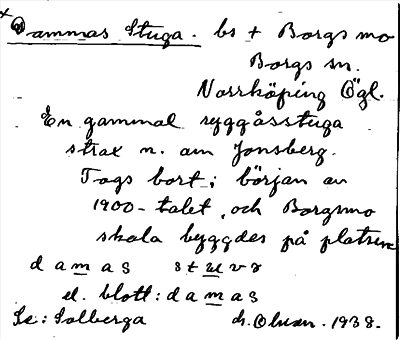 Dammas Stuga. bs + Borgs mo
Borgs sn.
Norrköping Ögl.
En gammal ryggåsstuga
strax n. om Jonsberg.
Togs bort i början av
1900-talet, och Borgsmo
skola byggdes på platsen
d a m a s s t u v r
el. blott: d a m a s
Se: Solberga 1938.